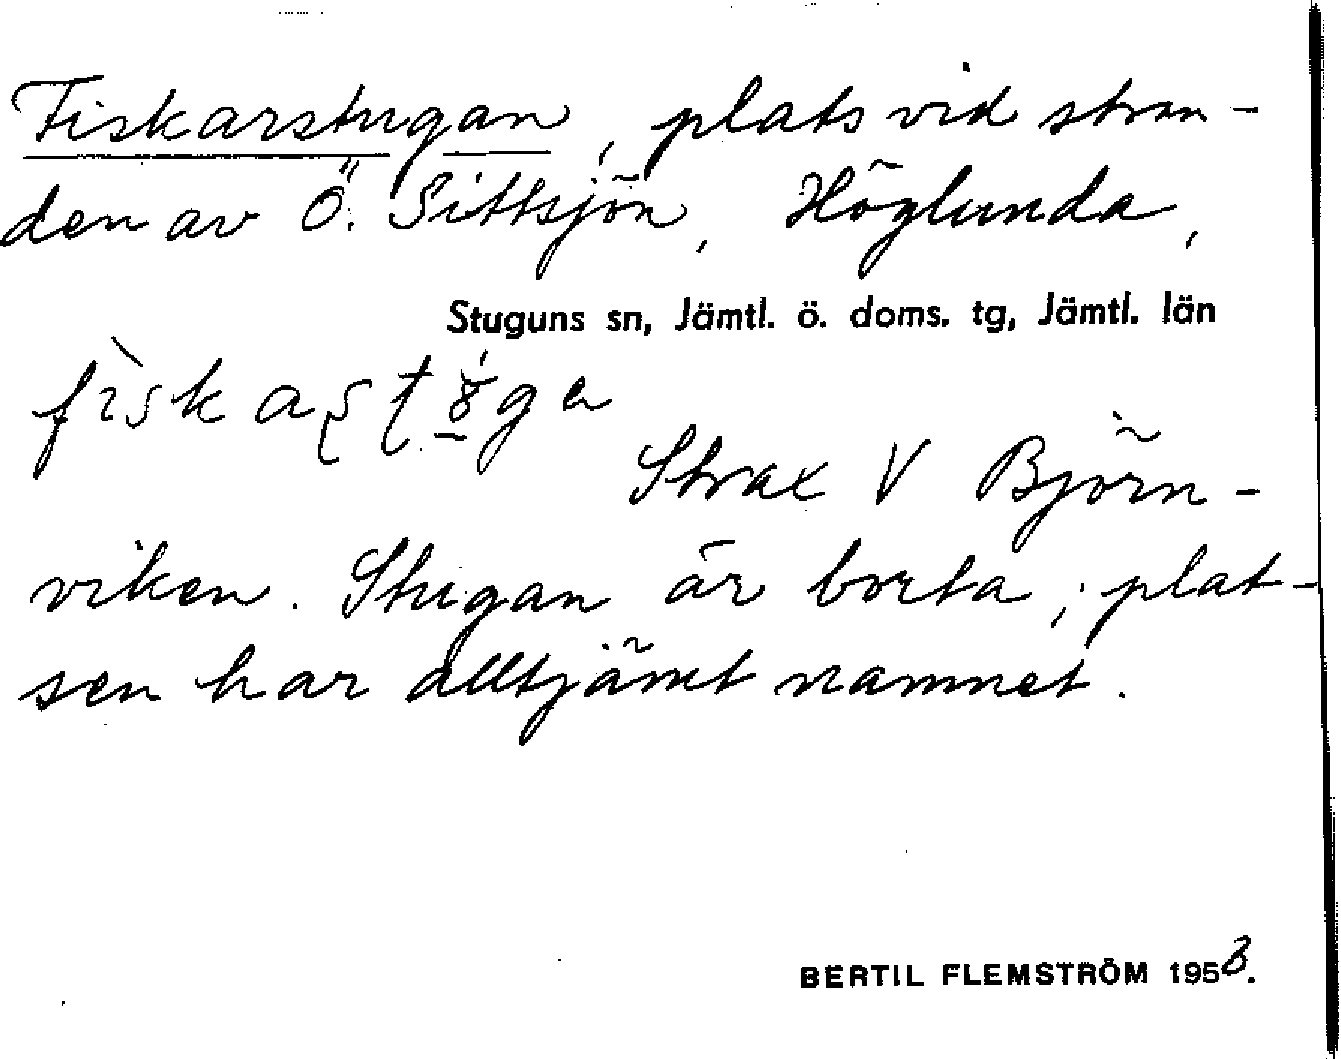 Fiskarstugan, plats vid stran-
den av Ö. Sittsjön, Höglunda,
Stuguns sn, Jämtl. ö. doms. tg, Jämtl. län
Strax V Björn-
viken. Stugan är borta; plat-
sen har alltjämt namnet.
BERTIL FLEMSTRÖM 1958.